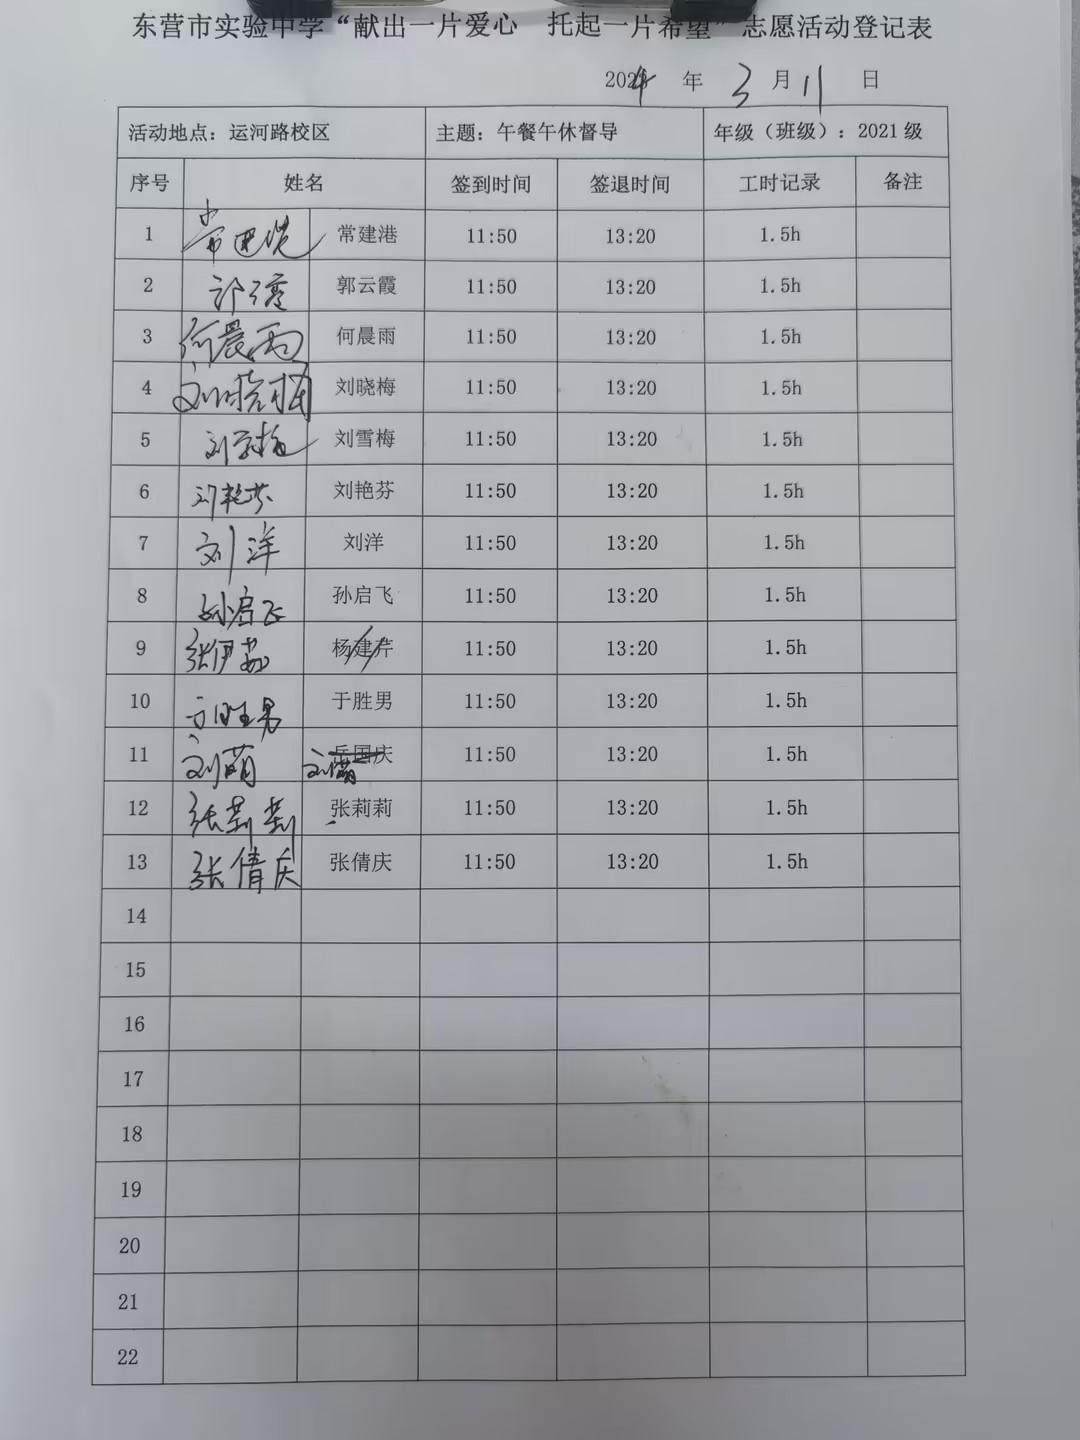 东营市实验中学“献出一片爱心 托起一片希望”志愿活动登记表
2024 年 3 月 11 日
活动地点：运河路校区 主题：午餐午休督导 年级（班级）：2021 级
序号 姓名 签到时间 签退时间 工时记录 备注
1 常建港 常建港 11:50 13:20 1.5h
2 郭云霞 郭云霞 11:50 13:20 1.5h
3 何晨雨 何晨雨 11:50 13:20 1.5h
4 刘晓梅 刘晓梅 11:50 13:20 1.5h
5 刘雪梅 刘雪梅 11:50 13:20 1.5h
6 刘艳芬 刘艳芬 11:50 13:20 1.5h
7 刘洋 刘洋 11:50 13:20 1.5h
8 孙启飞 孙启飞 11:50 13:20 1.5h
9 杨建芹 11:50 13:20 1.5h
10 于胜男 于胜男 11:50 13:20 1.5h
11 刘萌 刘萌 岳国庆 11:50 13:20 1.5h
12 张莉莉 张莉莉 11:50 13:20 1.5h
13 张倩庆 张倩庆 11:50 13:20 1.5h
14
15
16
17
18
19
20
21
22